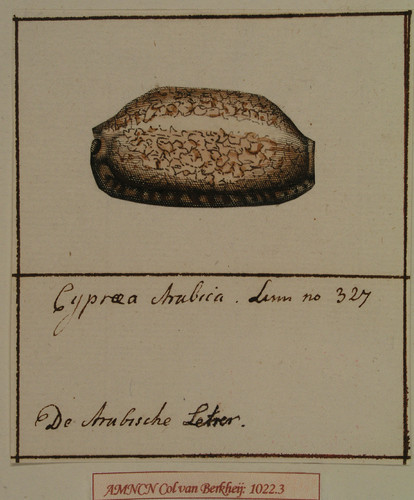 Cypræa Arabica. Linn no 327
De Arabische Letter.
AMNCN Col van Berkheij: 1022.3